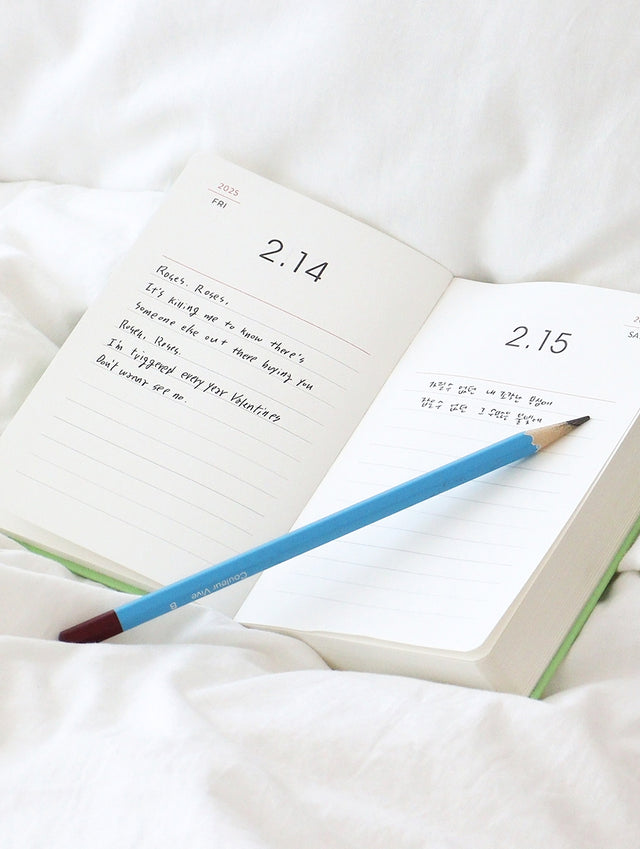 2025
FRI
2.14
Roses. Roses,
It's killing me to know there's
someone else out there buying you
Roses, Roses.
I'm triggered every year Valentines
Don't wanna see no.
2.15
SA
없던 내 조각난
없던
Couleur Vive B